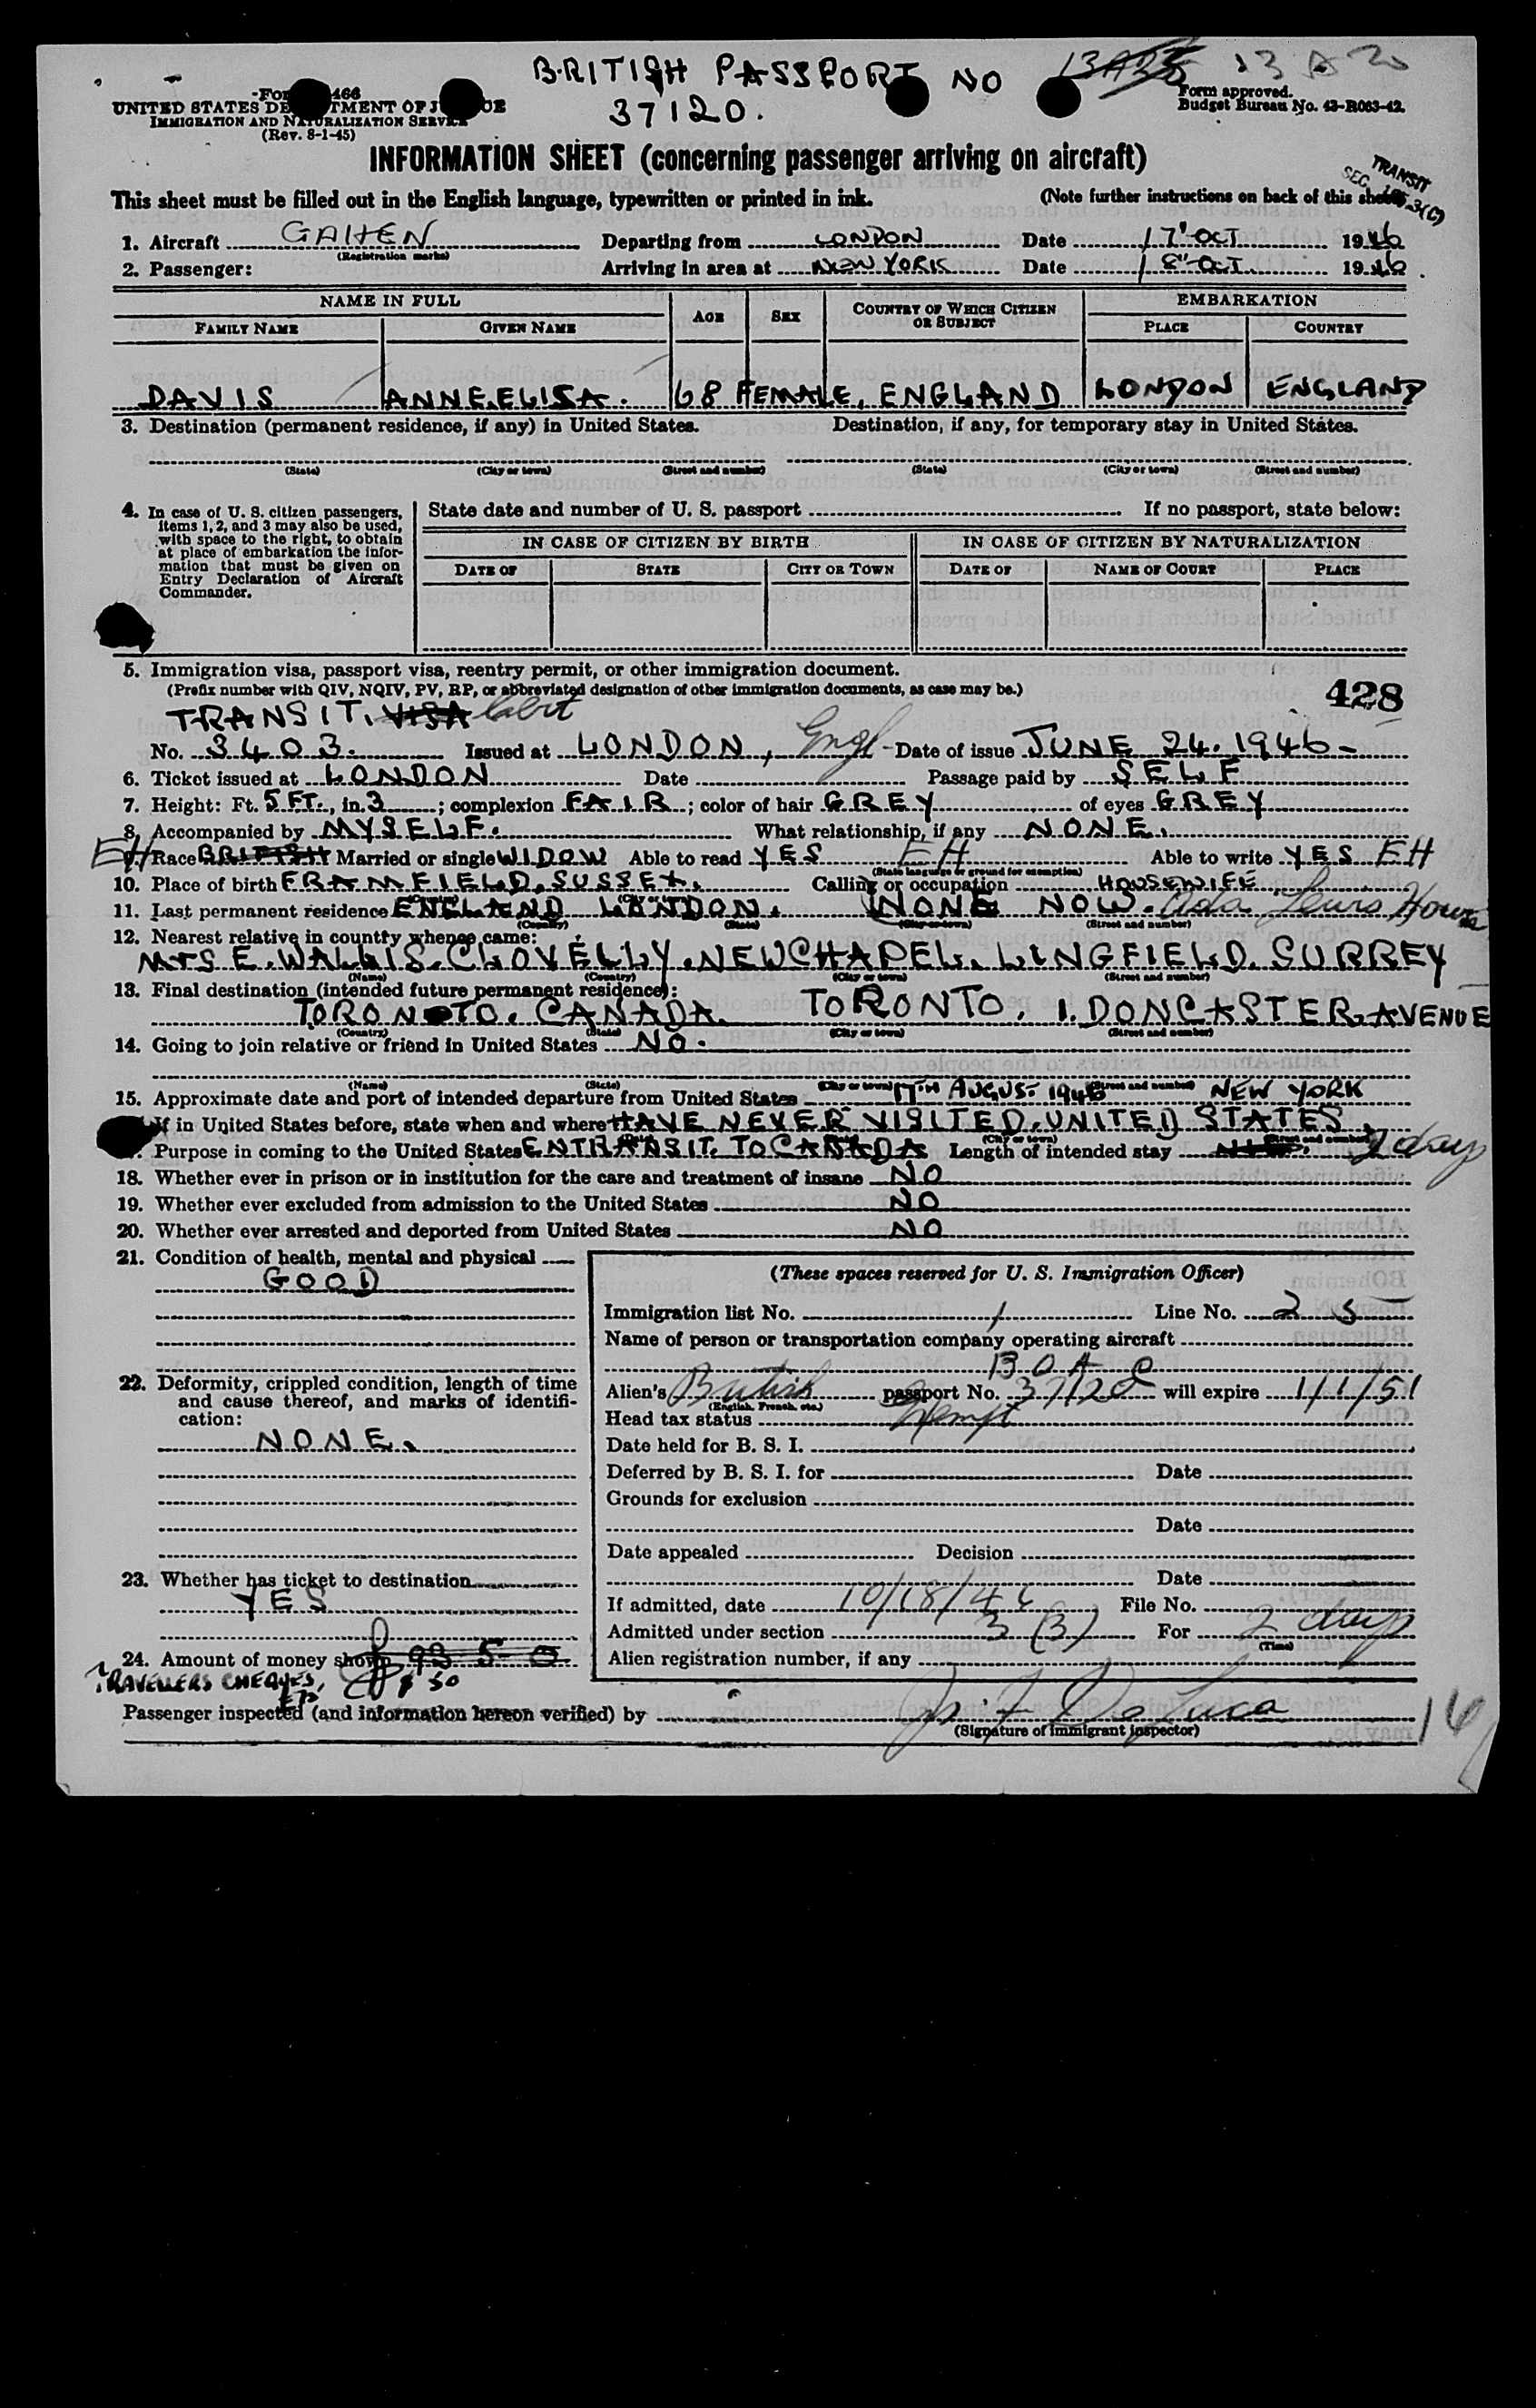 BRITISH PASSPORT NO 13 A 20
37120.
Form approved.
Budget Bureau No. 43-R063-42.
UNITED STATES DE TMENT OF J CE
IMMIGRATION AND NATURALIZATION SERVICE
(Rev. 8-1-45)
INFORMATION SHEET (concerning passenger arriving on aircraft)
TRANSIT
SEC. 3(C)
This sheet must be filled out in the English language, typewritten or printed in ink. (Note further instructions on back of this sheet)
1. Aircraft GAHEN Departing from LONDON Date 17' OCT 1946
(Registration marks)
2. Passenger: Arriving in area at NEW YORK Date 18" OCT. 1946
NAME IN FULL AGE SEX COUNTRY OF WHICH CITIZEN OR SUBJECT EMBARKATION
FAMILY NAME GIVEN NAME PLACE COUNTRY
DAVIS ANNE.ELISA. 68 FEMALE, ENGLAND LONDON ENGLAND
3. Destination (permanent residence, if any) in United States. Destination, if any, for temporary stay in United States.
(State) (City or town) (Street and number) (State) (City or town) (Street and number)
4. In case of U. S. citizen passengers, items 1, 2, and 3 may also be used, with space to the right, to obtain at place of embarkation the information that must be given on Entry Declaration of Aircraft Commander.
State date and number of U. S. passport If no passport, state below:
IN CASE OF CITIZEN BY BIRTH IN CASE OF CITIZEN BY NATURALIZATION
DATE OF STATE CITY OR TOWN DATE OF NAME OF COURT PLACE
5. Immigration visa, passport visa, reentry permit, or other immigration document.
(Prefix number with QIV, NQIV, PV, RP, or abbreviated designation of other immigration documents, as case may be.)
428
TRANSIT. VISA
No. 3403. Issued at LONDON, Engl Date of issue JUNE 24. 1946
6. Ticket issued at LONDON Date Passage paid by SELF
7. Height: Ft. 5 FT., in. 3; complexion FAIR; color of hair GREY of eyes GREY
8. Accompanied by MYSELF. What relationship, if any NONE.
EH Race BRITISH Married or single WIDOW Able to read YES EH Able to write YES EH
(State language or ground for exemption)
10. Place of birth FRAMFIELD, SUSSEX. Calling or occupation HOUSEWIFE
11. Last permanent residence ENGLAND LONDON. NONE NOW.
(Country) (State) (City or town) (Street and number)
12. Nearest relative in country whence came:
MRS E. WALLIS. CLOVELLY. NEWCHAPEL. LINGFIELD. SURREY
(Name) (Country) (City or town) (Street and number)
13. Final destination (intended future permanent residence):
TORONTO. CANADA. TORONTO. 1. DONCASTER. AVENUE
(Country) (State) (City or town) (Street and number)
14. Going to join relative or friend in United States NO.
(Name) (State) (City or town) (Street and number)
15. Approximate date and port of intended departure from United States 17TH AUGUST 1946 NEW YORK
If in United States before, state when and where HAVE NEVER VISITED. UNITED STATES
(City or town) (Street and number)
Purpose in coming to the United States ENTRANSIT. TO CANADA Length of intended stay 2 days
18. Whether ever in prison or in institution for the care and treatment of insane NO
19. Whether ever excluded from admission to the United States NO
20. Whether ever arrested and deported from United States NO
21. Condition of health, mental and physical
GOOD
22. Deformity, crippled condition, length of time and cause thereof, and marks of identification:
NONE.
23. Whether has ticket to destination
YES
24. Amount of money shown 93 5-0
TRAVELLERS CHEQUES, $ 50
(These spaces reserved for U. S. Immigration Officer)
Immigration list No. 1 Line No. 25
Name of person or transportation company operating aircraft
BOAC
Alien's British passport No. 37120 will expire 1/1/51
(English, French, etc.)
Head tax status Exempt
Date held for B. S. I.
Deferred by B. S. I. for Date
Grounds for exclusion
Date
Date appealed Decision
Date
If admitted, date 10/18/46 File No.
Admitted under section 3 (3) For 2 days
(Time)
Alien registration number, if any
Passenger inspected (and information hereon verified) by De Luca
(Signature of immigrant inspector)
16